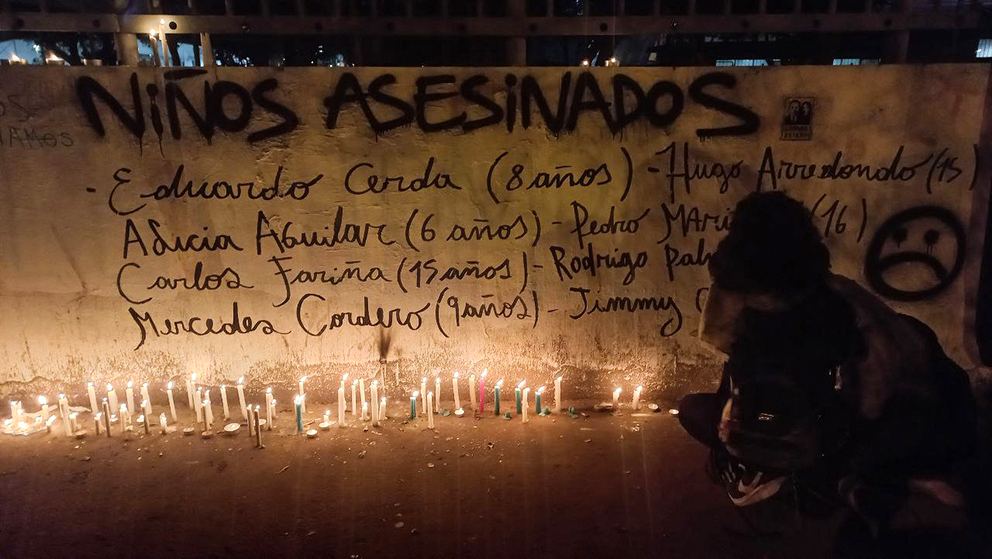 NiÑOS ASESiNADOS
- Eduardo Cerda (8 años) - Hugo Arredondo (15)
Alicia Aguilar (6 años) - Pedro (16)
Carlos Fariña (15 años) - Rodrigo
Mercedes Cordero (9 años) - Jimmy